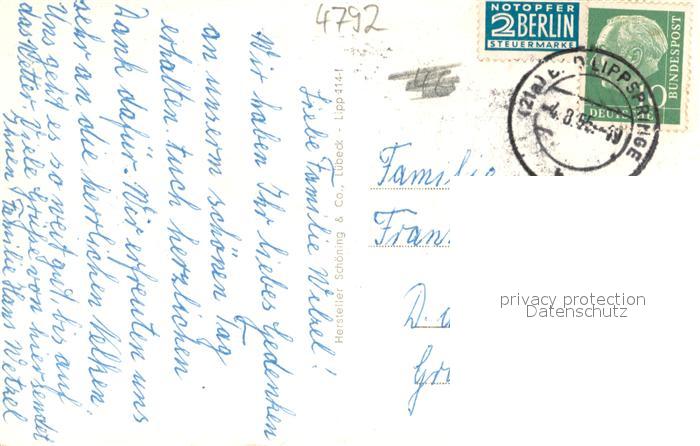 4792
NOTOPFER
2 BERLIN
STEUERMARKE
DEUTSCHE
BUNDESPOST
(21a) BAD LIPPSPRINGE
Liebe Familie Wetzel!
Wir haben Ihr liebes Gedenken
an unsern schönen Tag
erhalten. Euch herzlichen
Dank dafür. Wir erfreuten uns
sehr an die herrlichen Nelken.
Uns geht es so weit gut, bis auf
das Wetter. Viele Grüße von hier sendet
Ihnen Familie Hans Wetzel
Hersteller Schöning & Co., Lübeck - Lipp 414-1
Familie
Fran
D.
Gr
privacy protection
Datenschutz